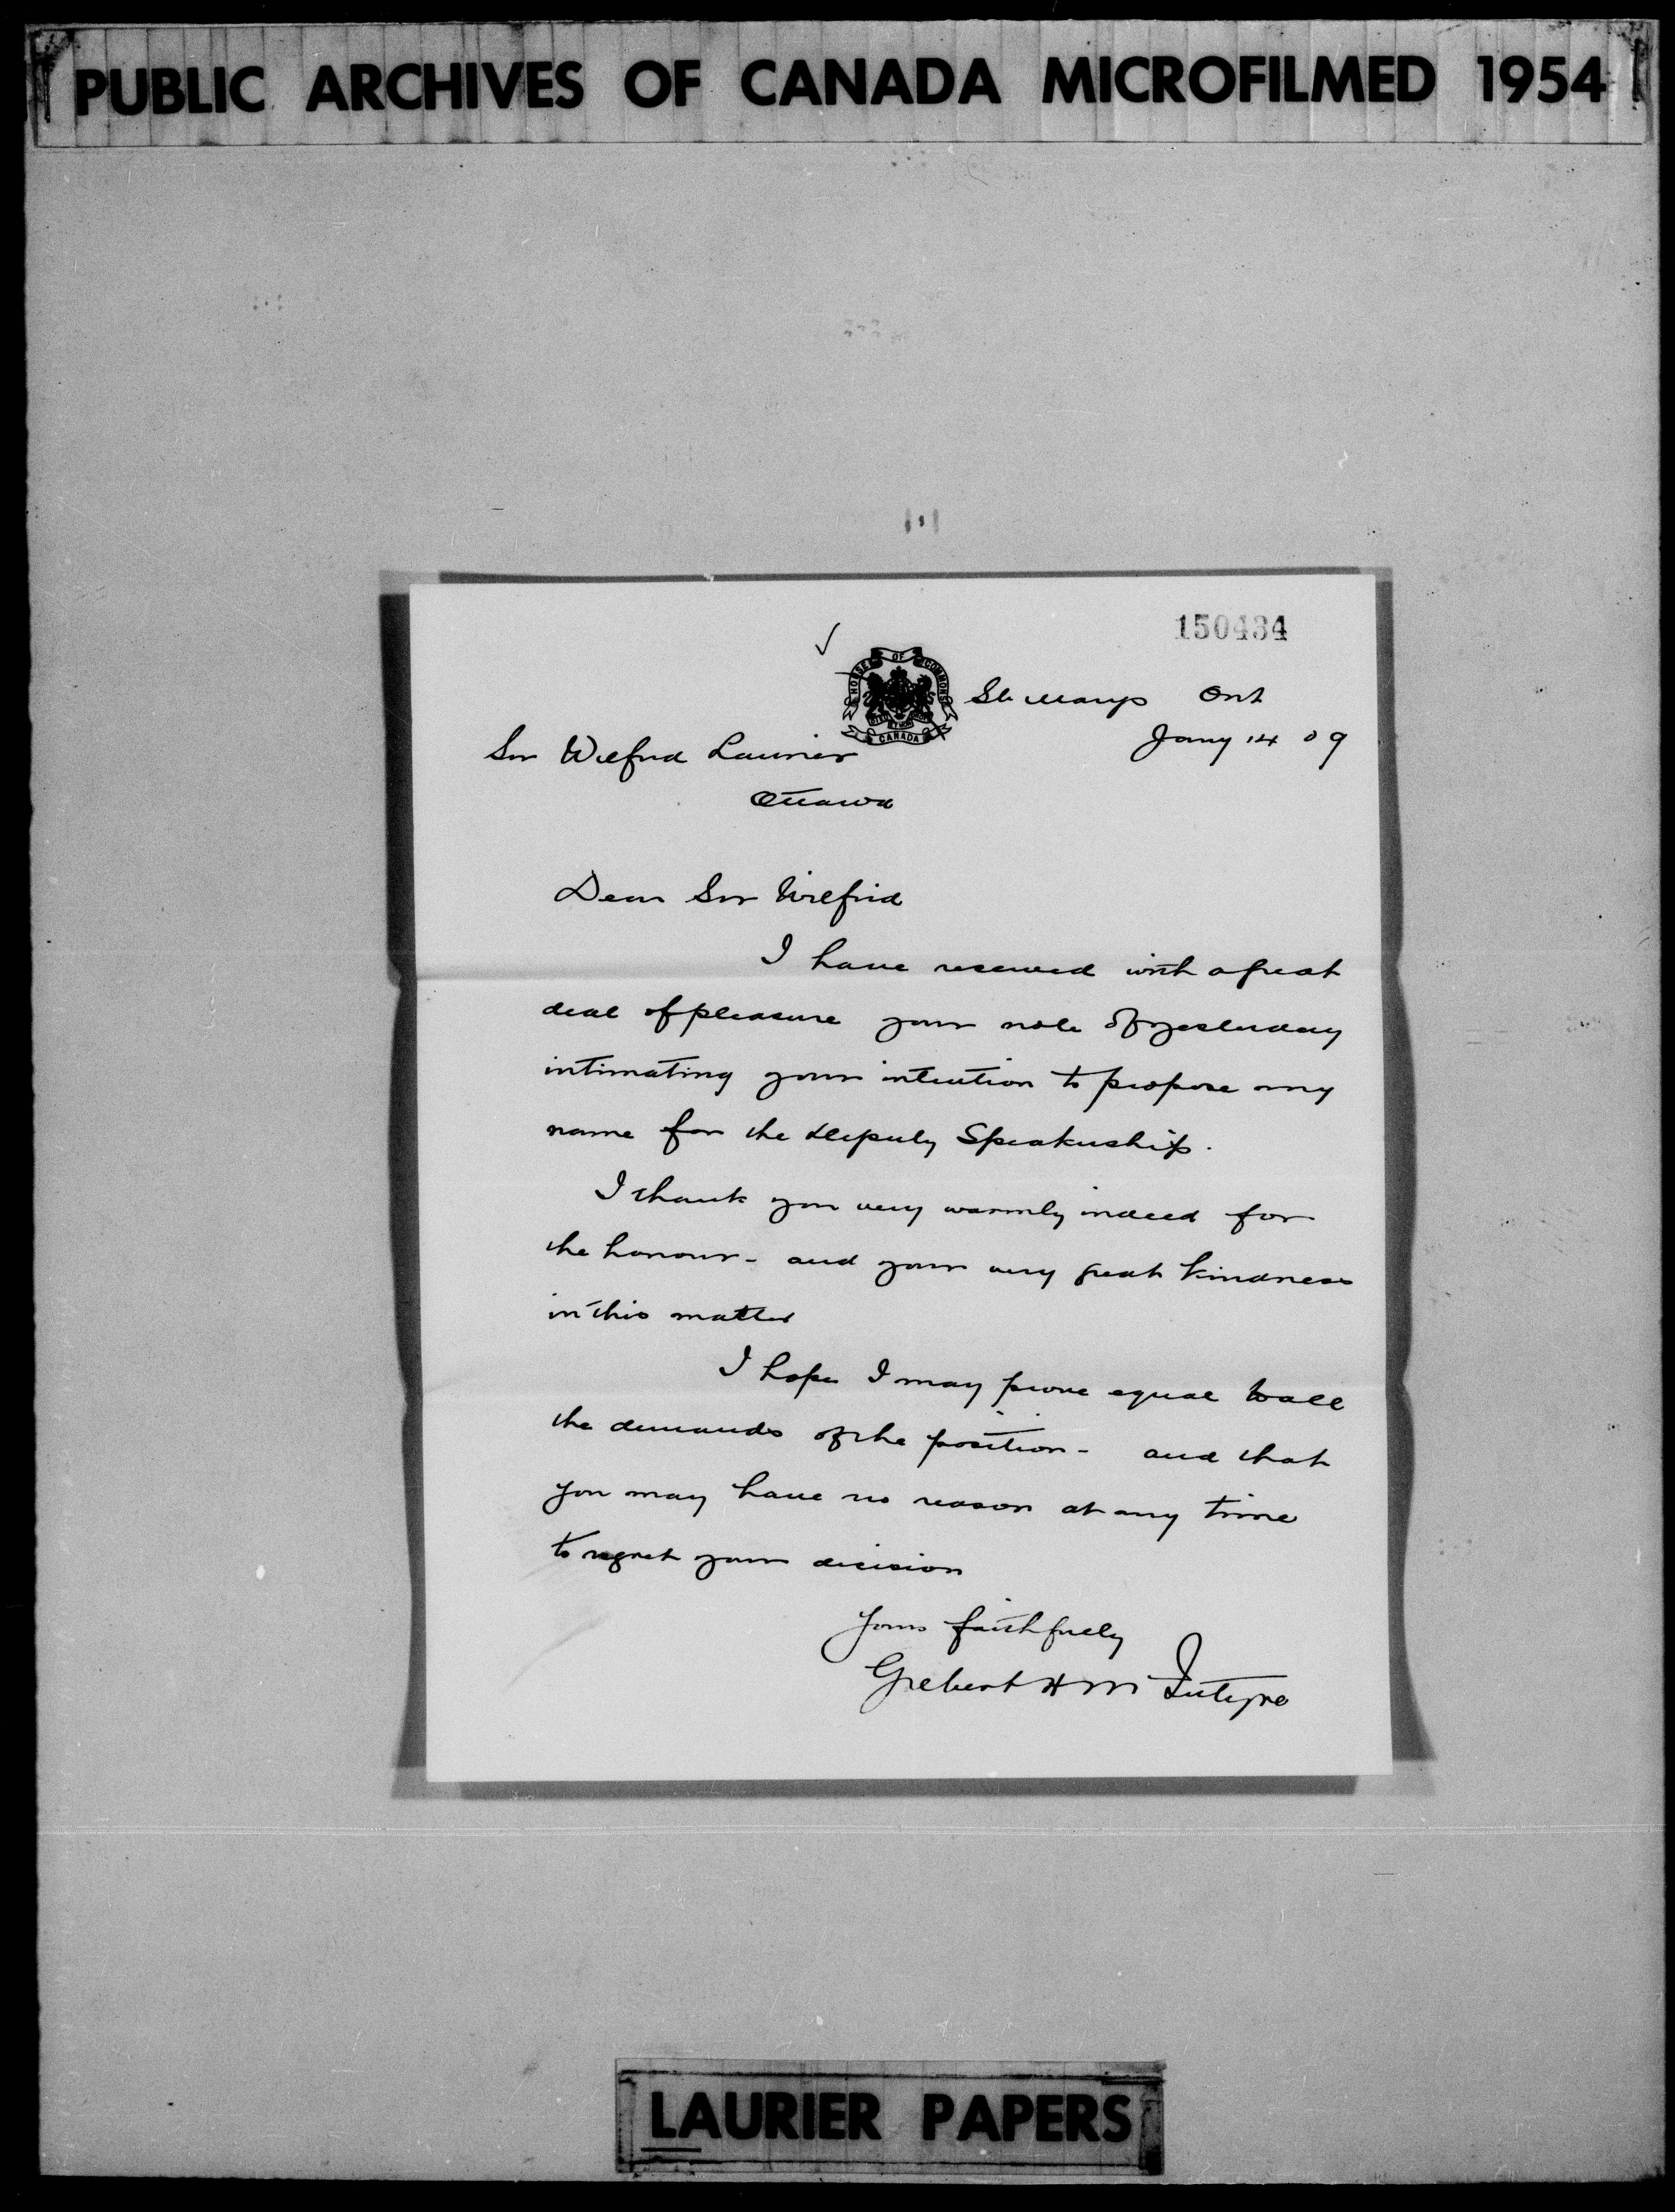 PUBLIC ARCHIVES OF CANADA MICROFILMED 1954
150434
HOUSE OF COMMONS
CANADA
St. Marys Ont
Jany 14 09
Sir Wilfrid Laurier
Ottawa
Dear Sir Wilfrid
I have received with a great
deal of pleasure your note of yesterday
intimating your intention to propose my
name for the Deputy Speakership.
I thank you very warmly indeed for
the honour - and your very great kindness
in this matter
I hope I may prove equal to all
the demands of the position - and that
you may have no reason at any time
to regret your decision
Yours faithfully
Gilbert H McIntyre
LAURIER PAPERS